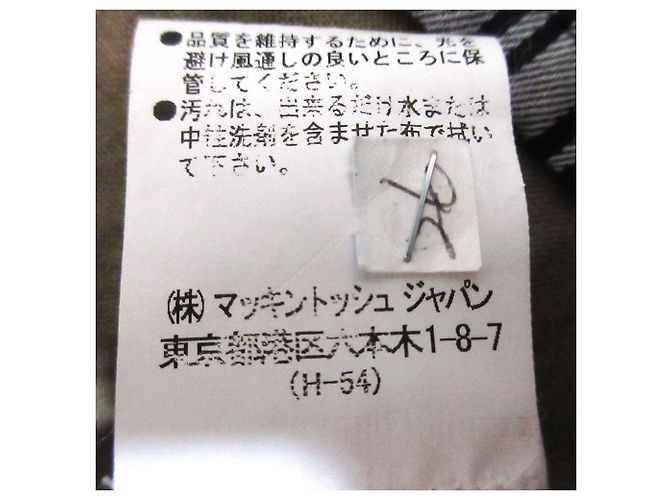 ●品質を維持するために、光を
避け風通しの良いところに保
管してください。
●汚れは、出来るだけ水または
中性洗剤を含ませた布で拭い
て下さい。
(株) マッキントッシュ ジャパン
東京都港区六本木1-8-7
(H-54)